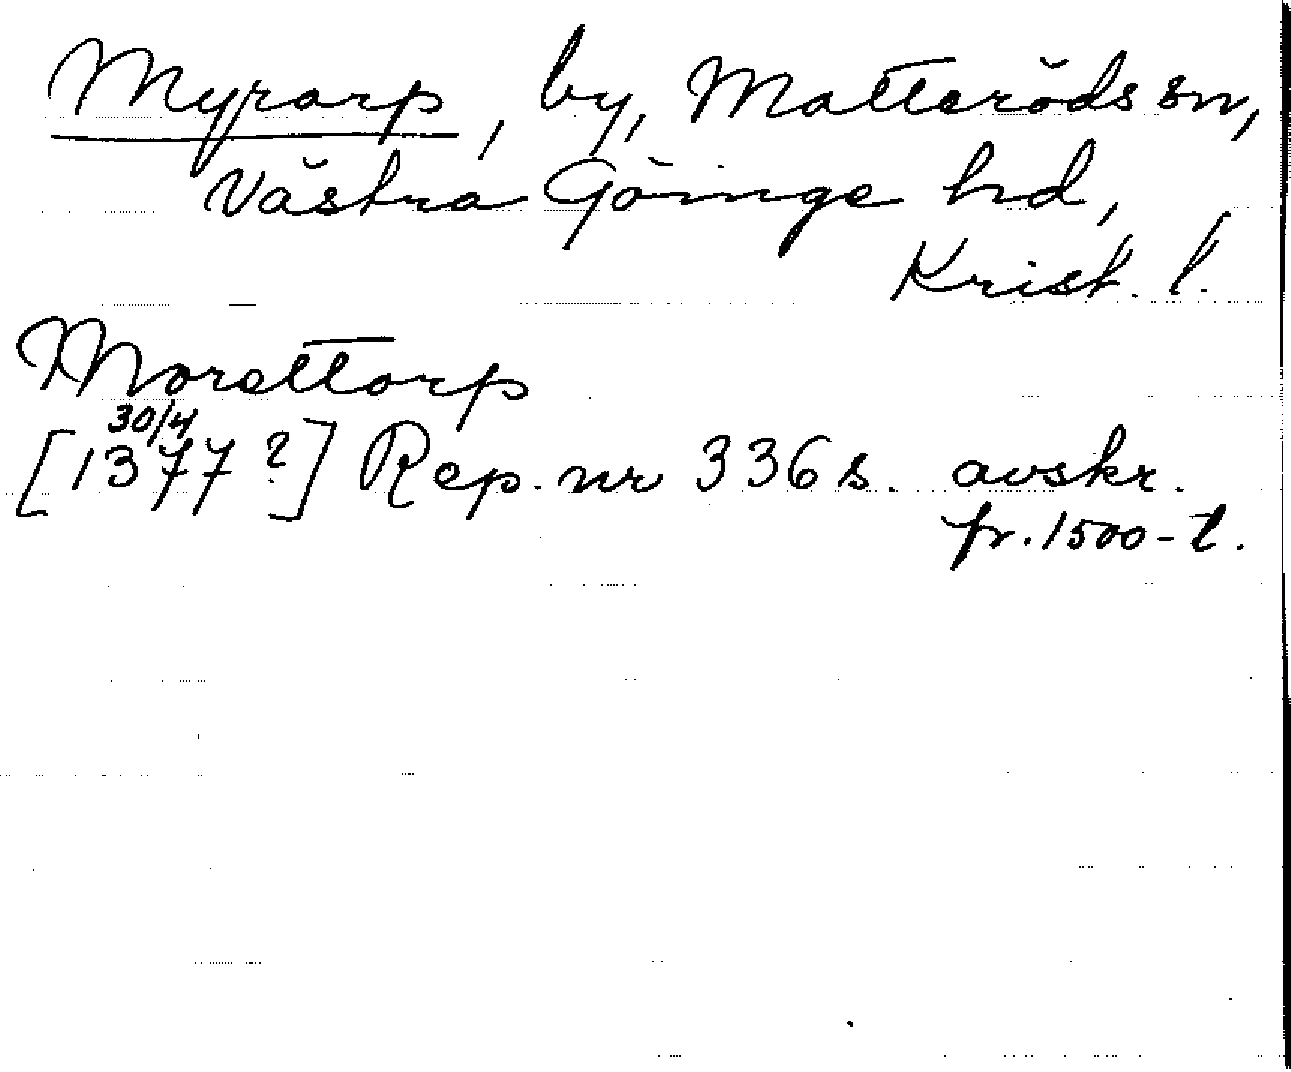 Myrarp, by, Matteröds sn,
Västra Göinge hd,
Krist. l.
Morættorp
30/4
[1377?] Rep. nr 336 s. avskr.
fr. 1500-t.